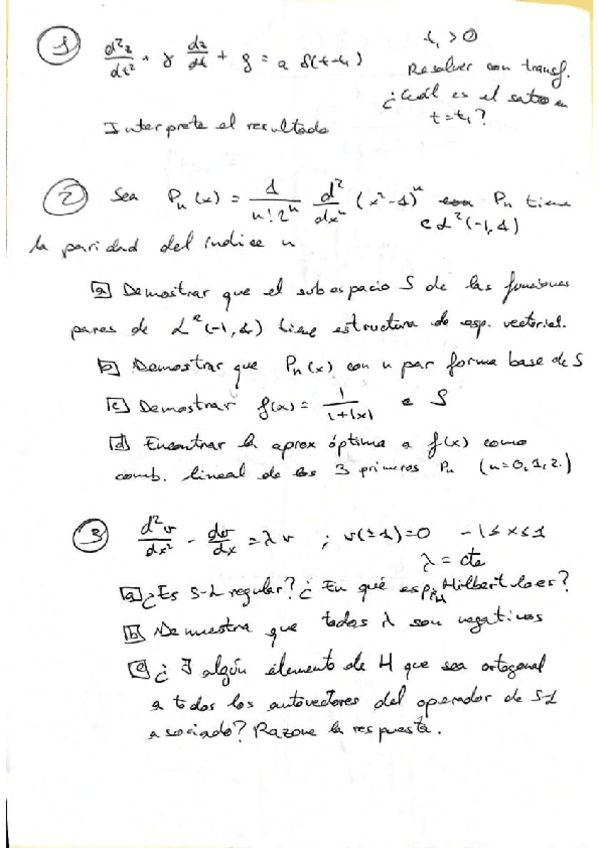 ① d²z/dt² + γ dz/dt + z = a δ(t-t₁) t₁ > 0
Resolver con transf.
¿Cuál es el salto en
t=t₁?
Interprete el resultado
② Sea Pₙ(x) = 1/(n! 2ⁿ) dⁿ/dxⁿ (x²-1)ⁿ Pₙ tiene
∈ L²(-1,1)
la paridad del índice n
[a] Demostrar que el subespacio S de las funciones
pares de L²(-1,1) tiene estructura de esp. vectorial.
[b] Demostrar que Pₙ(x) con n par forma base de S
[c] Demostrar f(x) = 1/(1+|x|) ∈ S
[d] Encontrar la aprox óptima a f(x) como
comb. lineal de los 3 primeros Pₙ (n=0,1,2.)
③ d²v/dx² - dv/dx = λ v ; v(±1)=0 -1≤x≤1
λ = cte
[a] ¿Es S-L regular? ¿En qué esp. Hilbert lo es?
H
[b] Demuestra que todos λ son negativos
[c] ¿∃ algún elemento de H que sea ortogonal
a todos los autovectores del operador de SL
asociado? Razone la respuesta.